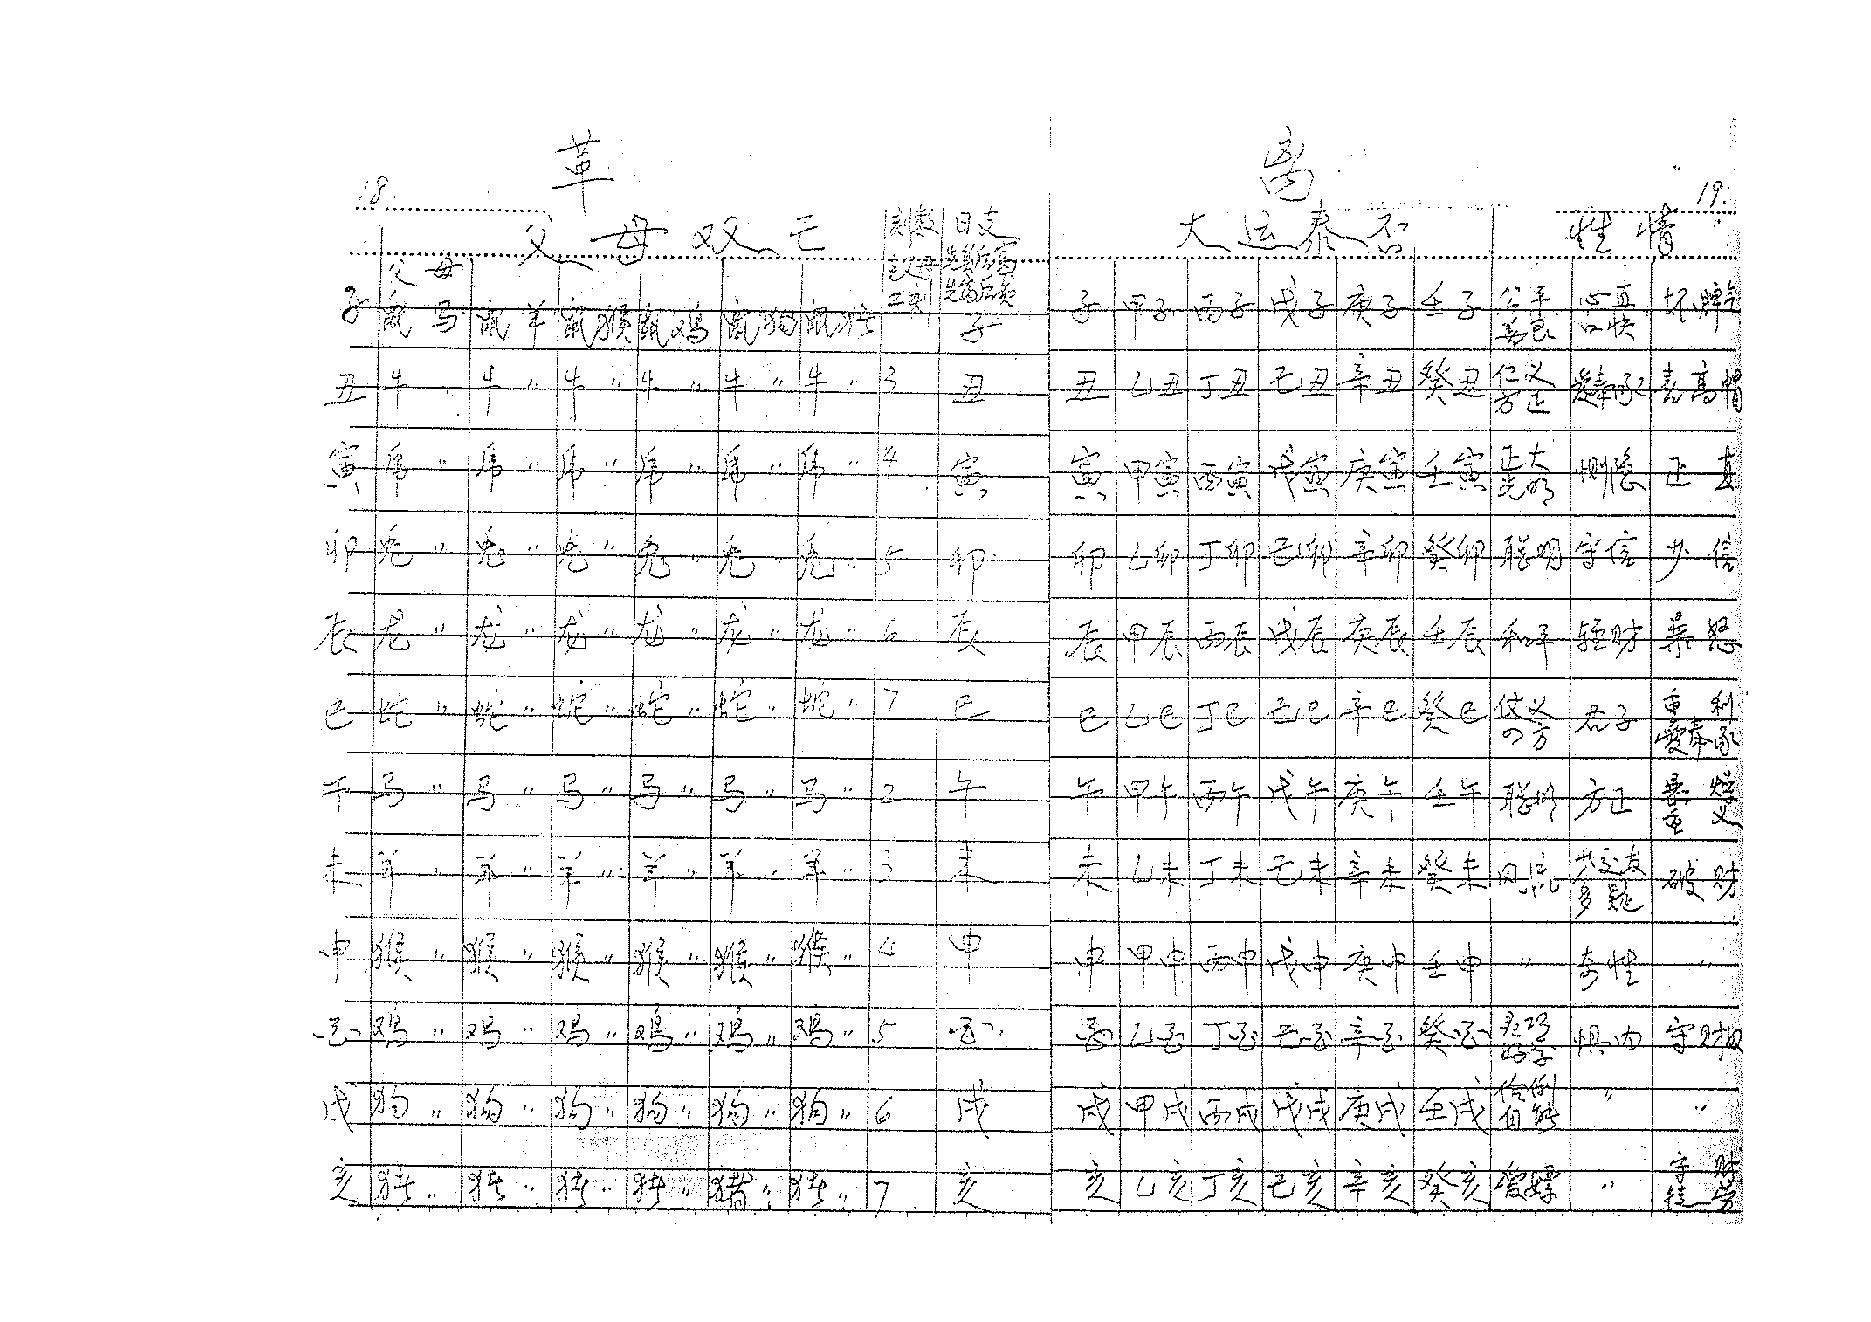 18. 革
父母双亡 刻数 日支
父母
子 鼠马 鼠羊 鼠猴 鼠鸡 鼠狗 鼠猪 子
丑 牛 〃 牛 〃 牛 〃 牛 〃 牛 〃 牛 〃 3 丑
寅 虎 〃 虎 〃 虎 〃 虎 〃 虎 〃 虎 〃 4 寅
卯 兔 〃 兔 〃 兔 〃 兔 〃 兔 〃 兔 〃 5 卯
辰 龙 〃 龙 〃 龙 〃 龙 〃 龙 〃 龙 〃 6 辰
巳 蛇 〃 蛇 〃 蛇 〃 蛇 〃 蛇 〃 蛇 〃 7 巳
午 马 〃 马 〃 马 〃 马 〃 马 〃 马 〃 2 午
未 羊 〃 羊 〃 羊 〃 羊 〃 羊 〃 羊 〃 3 未
申 猴 〃 猴 〃 猴 〃 猴 〃 猴 〃 猴 〃 4 申
酉 鸡 〃 鸡 〃 鸡 〃 鸡 〃 鸡 〃 鸡 〃 5 酉
戌 狗 〃 狗 〃 狗 〃 狗 〃 狗 〃 狗 〃 6 戌
亥 猪 〃 猪 〃 猪 〃 猪 〃 猪 〃 猪 〃 7 亥
离 19.
大运泰否 性情
子 甲子 丙子 戊子 庚子 壬子 公平善良 心直口快 坏脾气
丑 乙丑 丁丑 己丑 辛丑 癸丑 仁义方正 高
寅 甲寅 丙寅 戊寅 庚寅 壬寅 正大光明 恻隐 正直
卯 乙卯 丁卯 己卯 辛卯 癸卯 聪明 守信 少信
辰 甲辰 丙辰 戊辰 庚辰 壬辰 和平 轻财 暴怒
巳 乙巳 丁巳 己巳 辛巳 癸巳 仗义四方 君子 重利
午 甲午 丙午 戊午 庚午 壬午 聪明 方正
未 乙未 丁未 己未 辛未 癸未 风流 多疑 破财
申 甲申 丙申 戊申 庚申 壬申 〃 奇性 〃
酉 乙酉 丁酉 己酉 辛酉 癸酉 惧内 守财奴
戌 甲戌 丙戌 戊戌 庚戌 壬戌 伶俐 〃 〃
亥 乙亥 丁亥 己亥 辛亥 癸亥 〃 守财